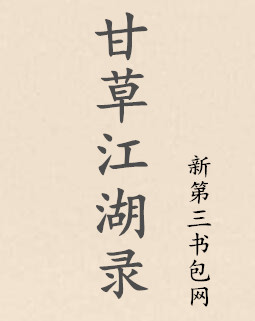 甘草江湖录
新第三书包网